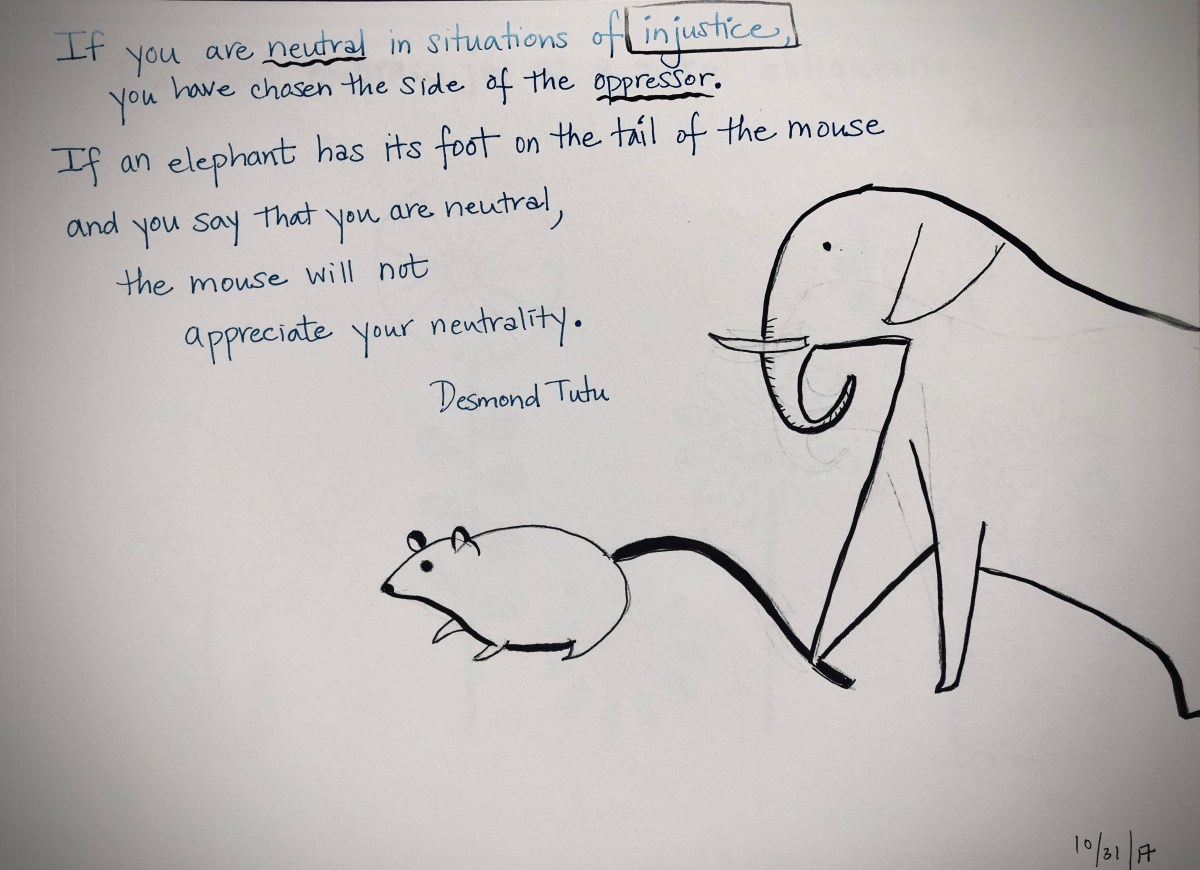 If you are neutral in situations of injustice,
you have chosen the side of the oppressor.
If an elephant has its foot on the tail of the mouse
and you say that you are neutral,
the mouse will not
appreciate your neutrality.
Desmond Tutu
10/31/17